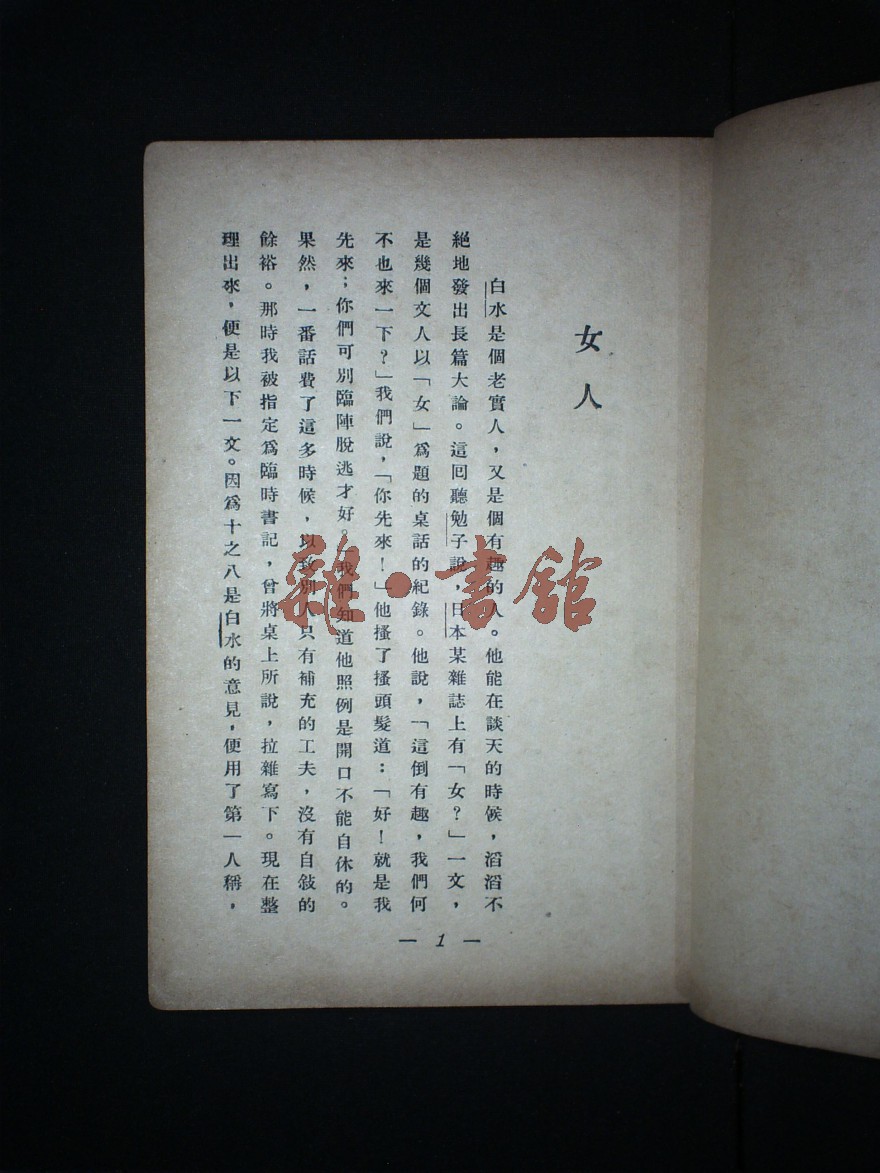 女人
白水是個老實人，又是個有趣的人。他能在談天的時候，滔滔不
絕地發出長篇大論。這回聽勉子說，日本某雜誌上有「女？」一文，
是幾個文人以「女」爲題的桌話的紀錄。他說，「這倒有趣，我們何
不也來一下？」我們說，「你先來！」他搔了搔頭髮道：「好！就是我
先來；你們可別臨陣脫逃才好。」我們知道他照例是開口不能自休的。
果然，一番話費了這多時候，以致別人只有補充的工夫，沒有自敍的
餘裕。那時我被指定爲臨時書記，曾將桌上所說，拉雜寫下。現在整
理出來，便是以下一文。因爲十之八是白水的意見，便用了第一人稱，
— 1 —
雜·書館